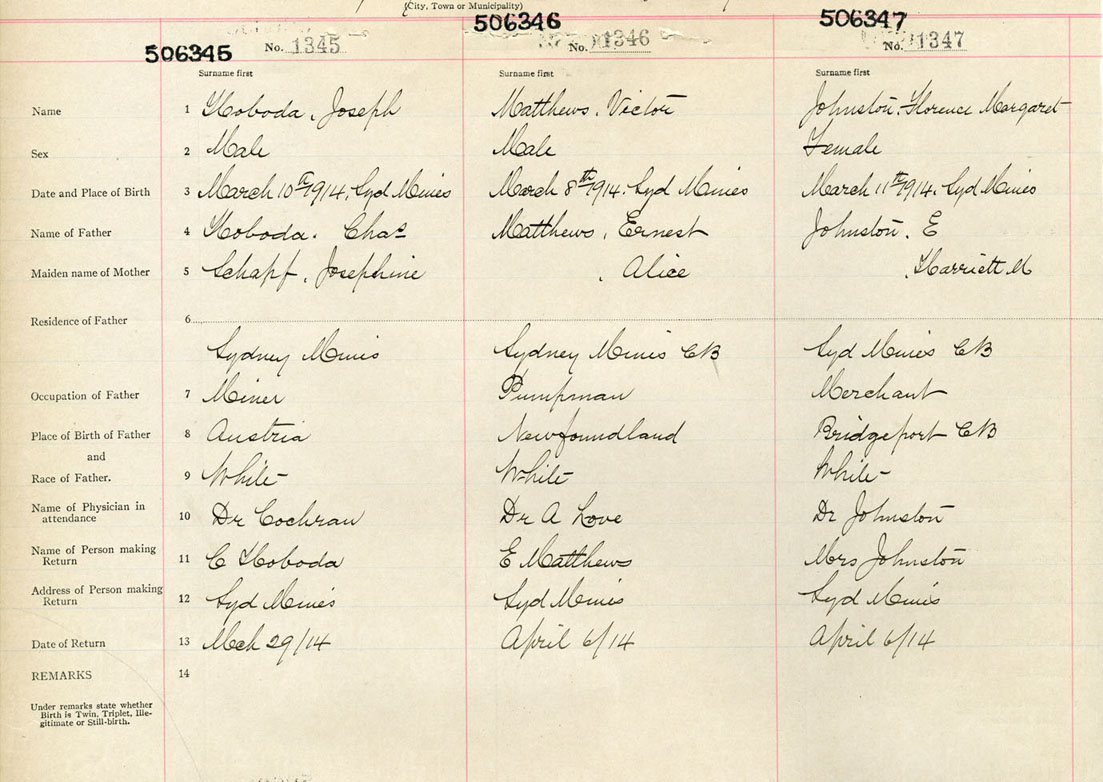 (City, Town or Municipality)
506345 No. 1345 506346 No. 1346 506347 No. 1347
Surname first Surname first Surname first
Name 1 Hoboda, Joseph Matthews, Victor Johnston, Florence Margaret
Sex 2 Male Male Female
Date and Place of Birth 3 March 10th 1914, Syd Mines March 8th 1914, Syd Mines March 11th 1914, Syd Mines
Name of Father 4 Hoboda, Chas Matthews, Ernest Johnston, E
Maiden name of Mother 5 Schapf, Josephine , Alice , Harriett M
Residence of Father 6
Sydney Mines Sydney Mines CB Syd Mines CB
Occupation of Father 7 Miner Pumpman Merchant
Place of Birth of Father 8 Austria Newfoundland Bridgeport CB
and
Race of Father. 9 White White White
Name of Physician in attendance 10 Dr Cochran Dr A Love Dr Johnston
Name of Person making Return 11 C Hoboda E Matthews Mrs Johnston
Address of Person making Return 12 Syd Mines Syd Mines Syd Mines
Date of Return 13 Mch 29/14 April 6/14 April 6/14
REMARKS 14
Under remarks state whether
Birth is Twin, Triplet, Ille-
gitimate or Still-birth.